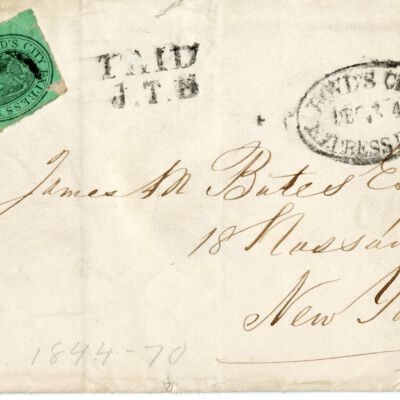 BOYD'S CITY EXPRESS
PAID
J.T.B
BOYD'S CITY EXPRESS P
DEC 24
James M Bates E
18 Nassau
New Yo
1844-70